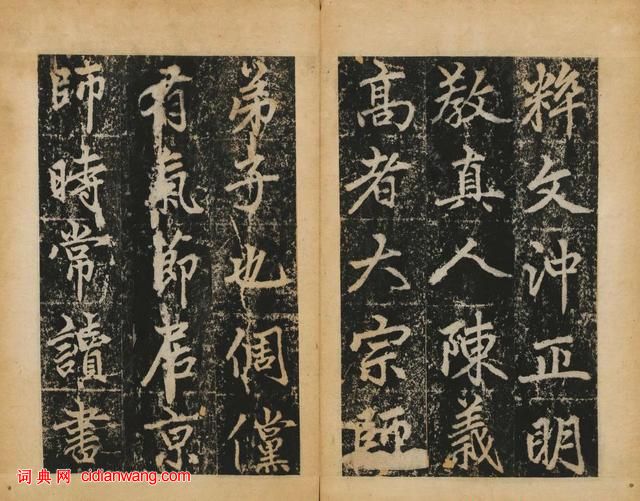 粹文沖正明
教真人陳義
高者大宗師
弟子也倜儻
有氣節居京
師時常讀書
词典网 cidianwang.com